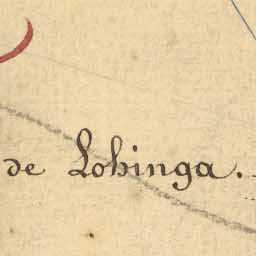 de Lohinga.